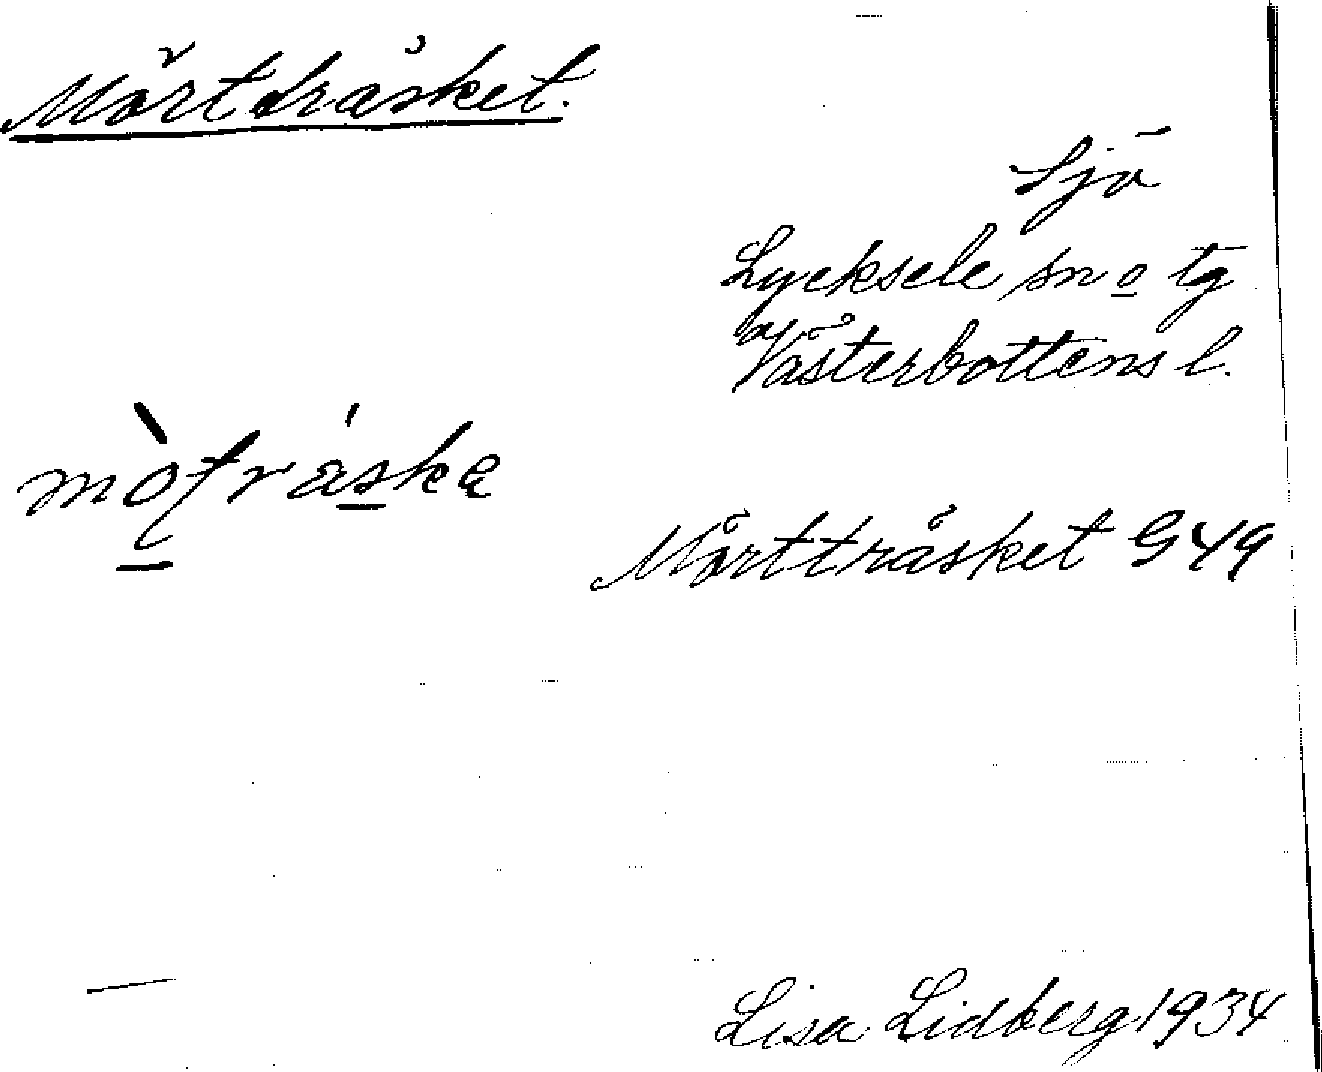 Mörtträsket.
Sjö
Lycksele sn o tg
Västerbottens l.
Mörtträsket G49
Lisa Lidberg 1934